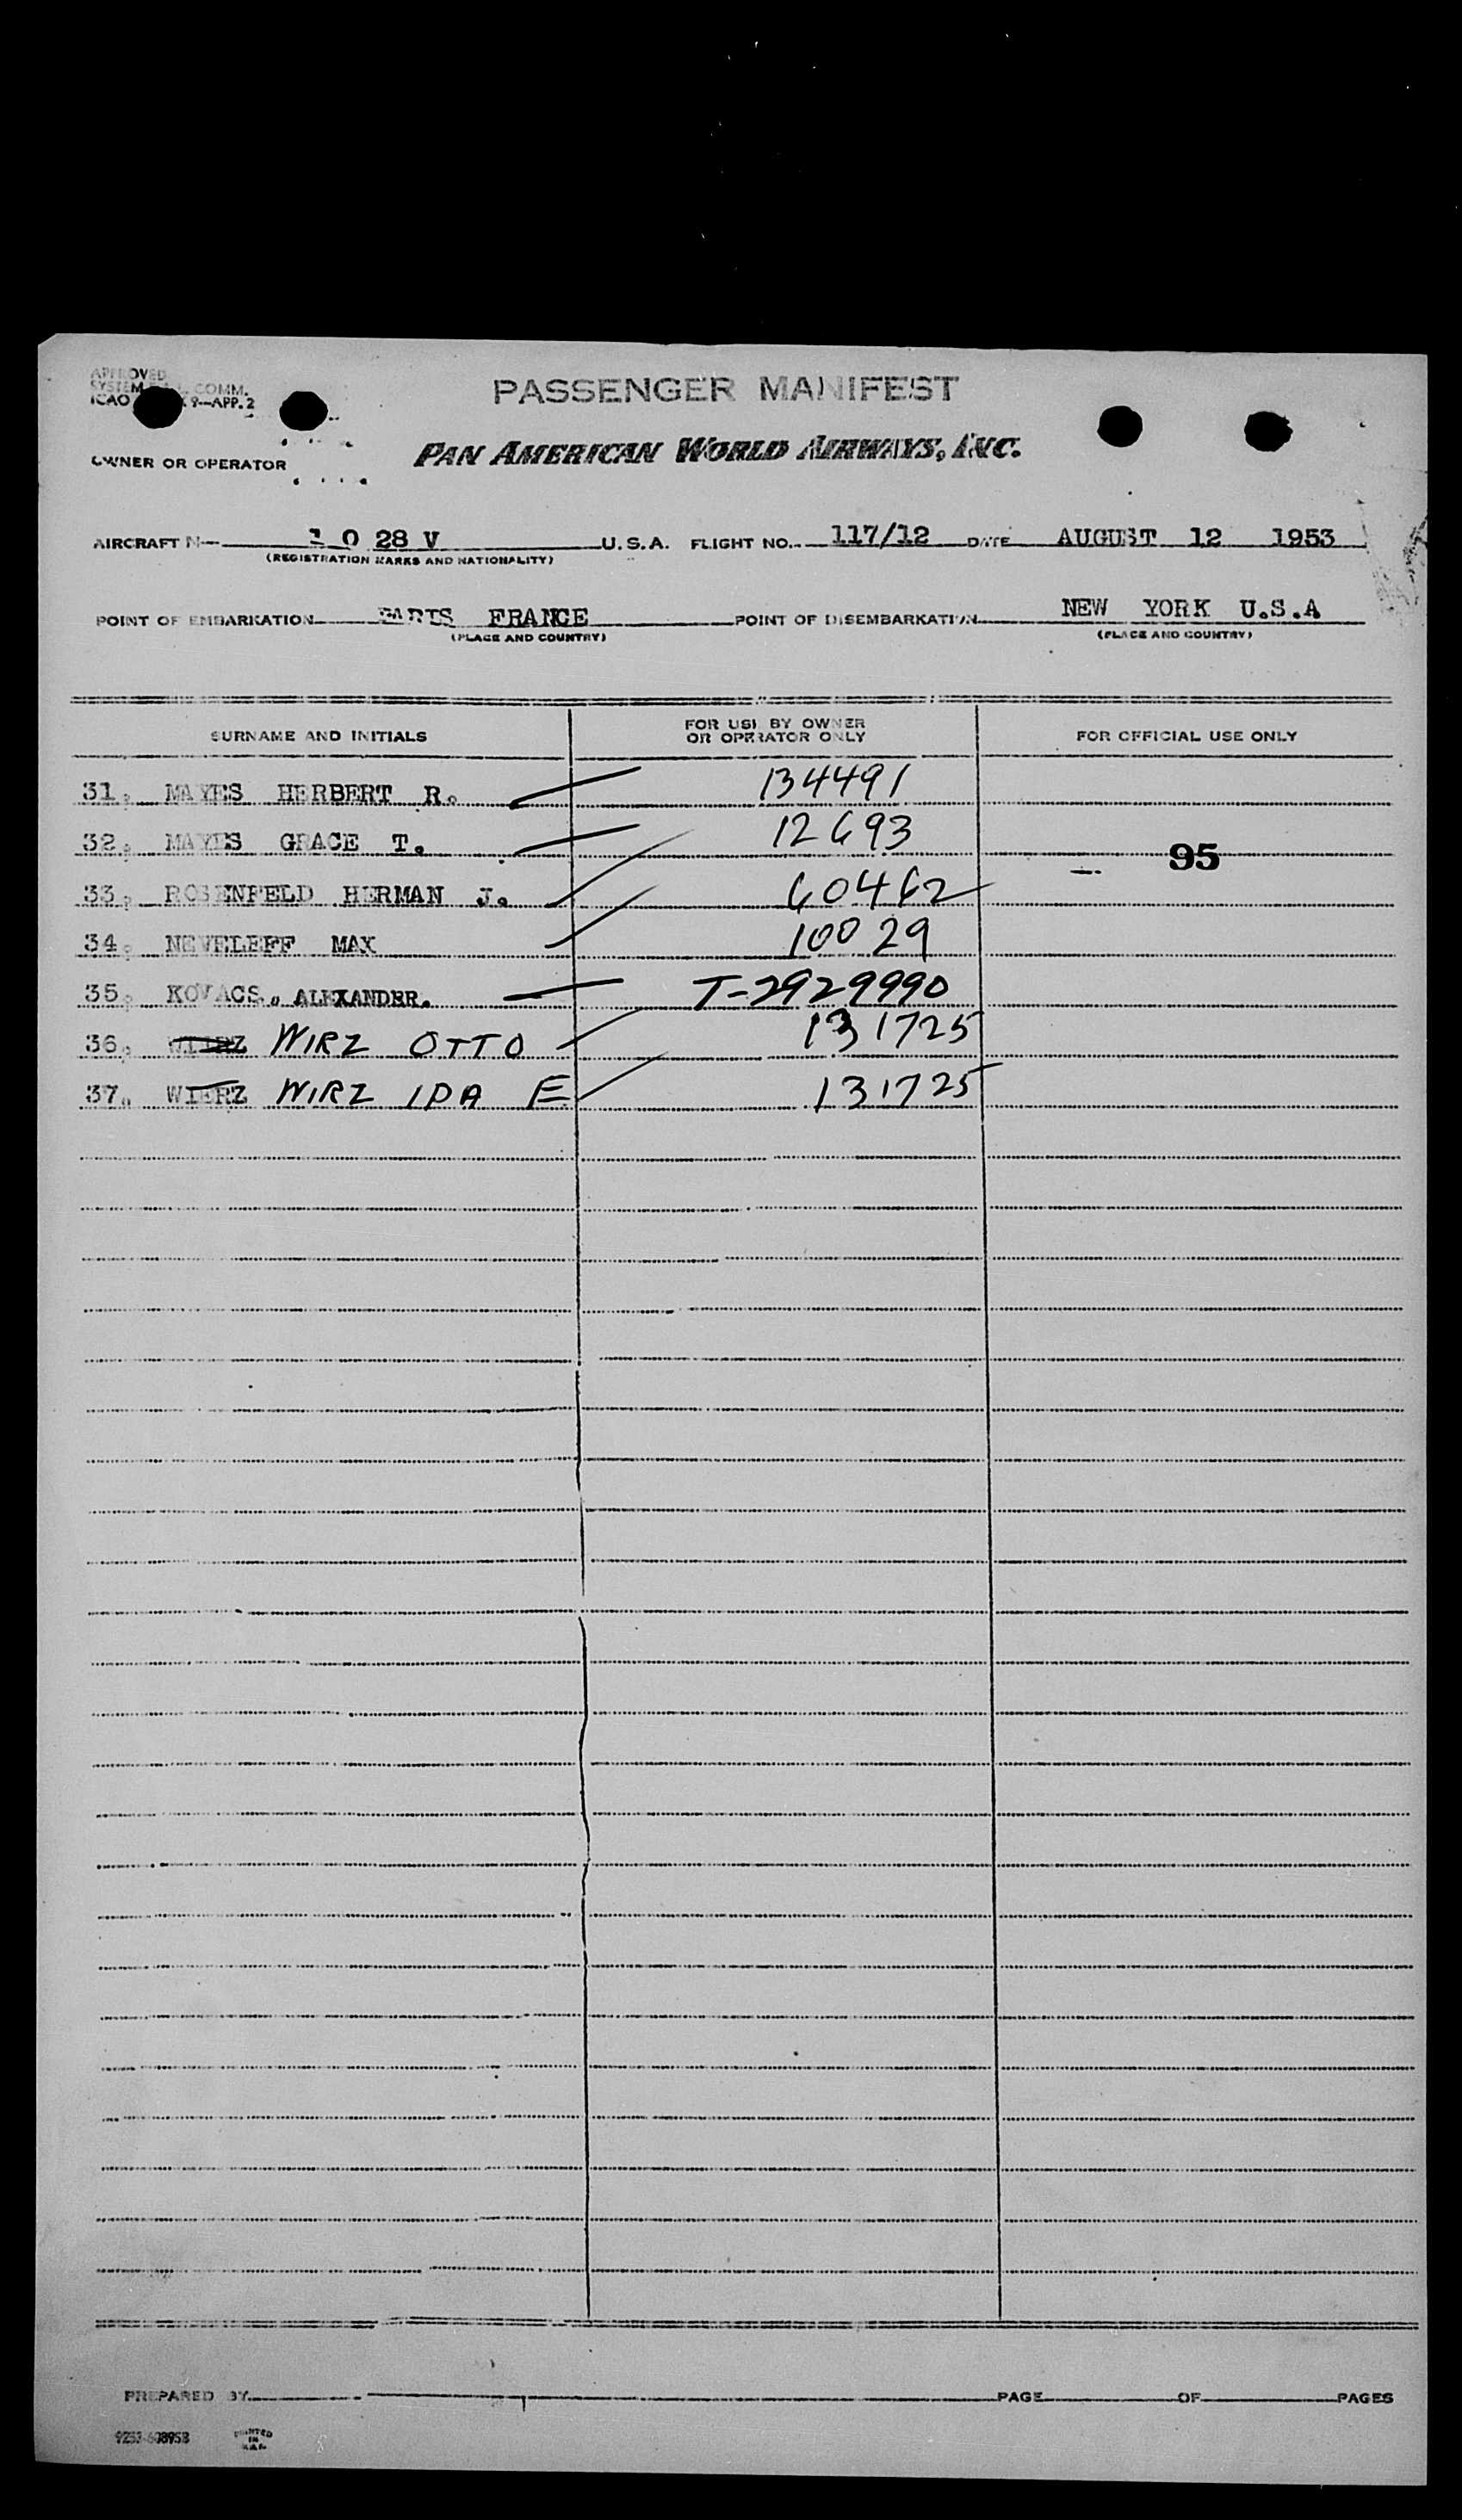 APPROVED
SYSTEM COMM.
ICAO 9—APP. 2
PASSENGER MANIFEST
OWNER OR OPERATOR PAN AMERICAN WORLD AIRWAYS, INC.
AIRCRAFT N— 1 0 28 V U.S.A. FLIGHT NO. 117/12 DATE AUGUST 12 1953
(REGISTRATION MARKS AND NATIONALITY)
POINT OF EMBARKATION PARIS FRANCE POINT OF DISEMBARKATION NEW YORK U.S.A
(PLACE AND COUNTRY) (PLACE AND COUNTRY)
SURNAME AND INITIALS FOR USE BY OWNER OR OPERATOR ONLY FOR OFFICIAL USE ONLY
31. MAYES HERBERT R. 134491
32. MAYES GRACE T. 12693
95
33. ROSENFELD HERMAN J. 60462
34. NEVELEFF MAX 10029
35. KOVACS, ALEXANDER. T-2929990
36. WIERZ WIRZ OTTO 131725
37. WIERZ WIRZ IDA E 131725
PREPARED BY PAGE OF PAGES
PRINTED
IN
U.S.A.